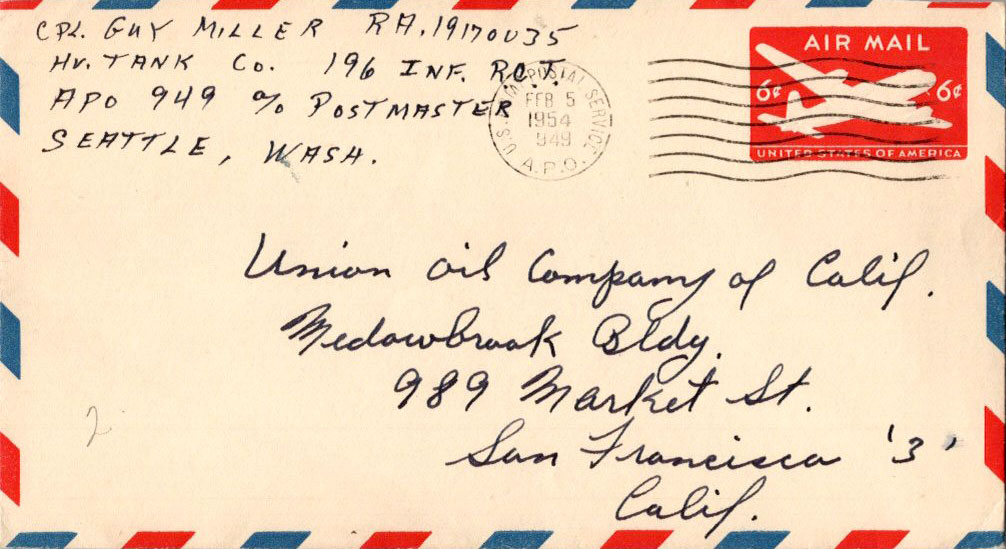 CPL. GUY MILLER RA.19170035
HV. TANK CO. 196 INF. R.C.T.
APO 949 % POSTMASTER
SEATTLE, WASH.
U.S. ARMY POSTAL SERVICE
FEB 5
1954
949
A.P.O.
AIR MAIL
6¢ 6¢
UNITED STATES OF AMERICA
Union Oil Company of Calif.
Medowbrook Bldg.
989 Market St.
San Francisco '3'
Calif.
2